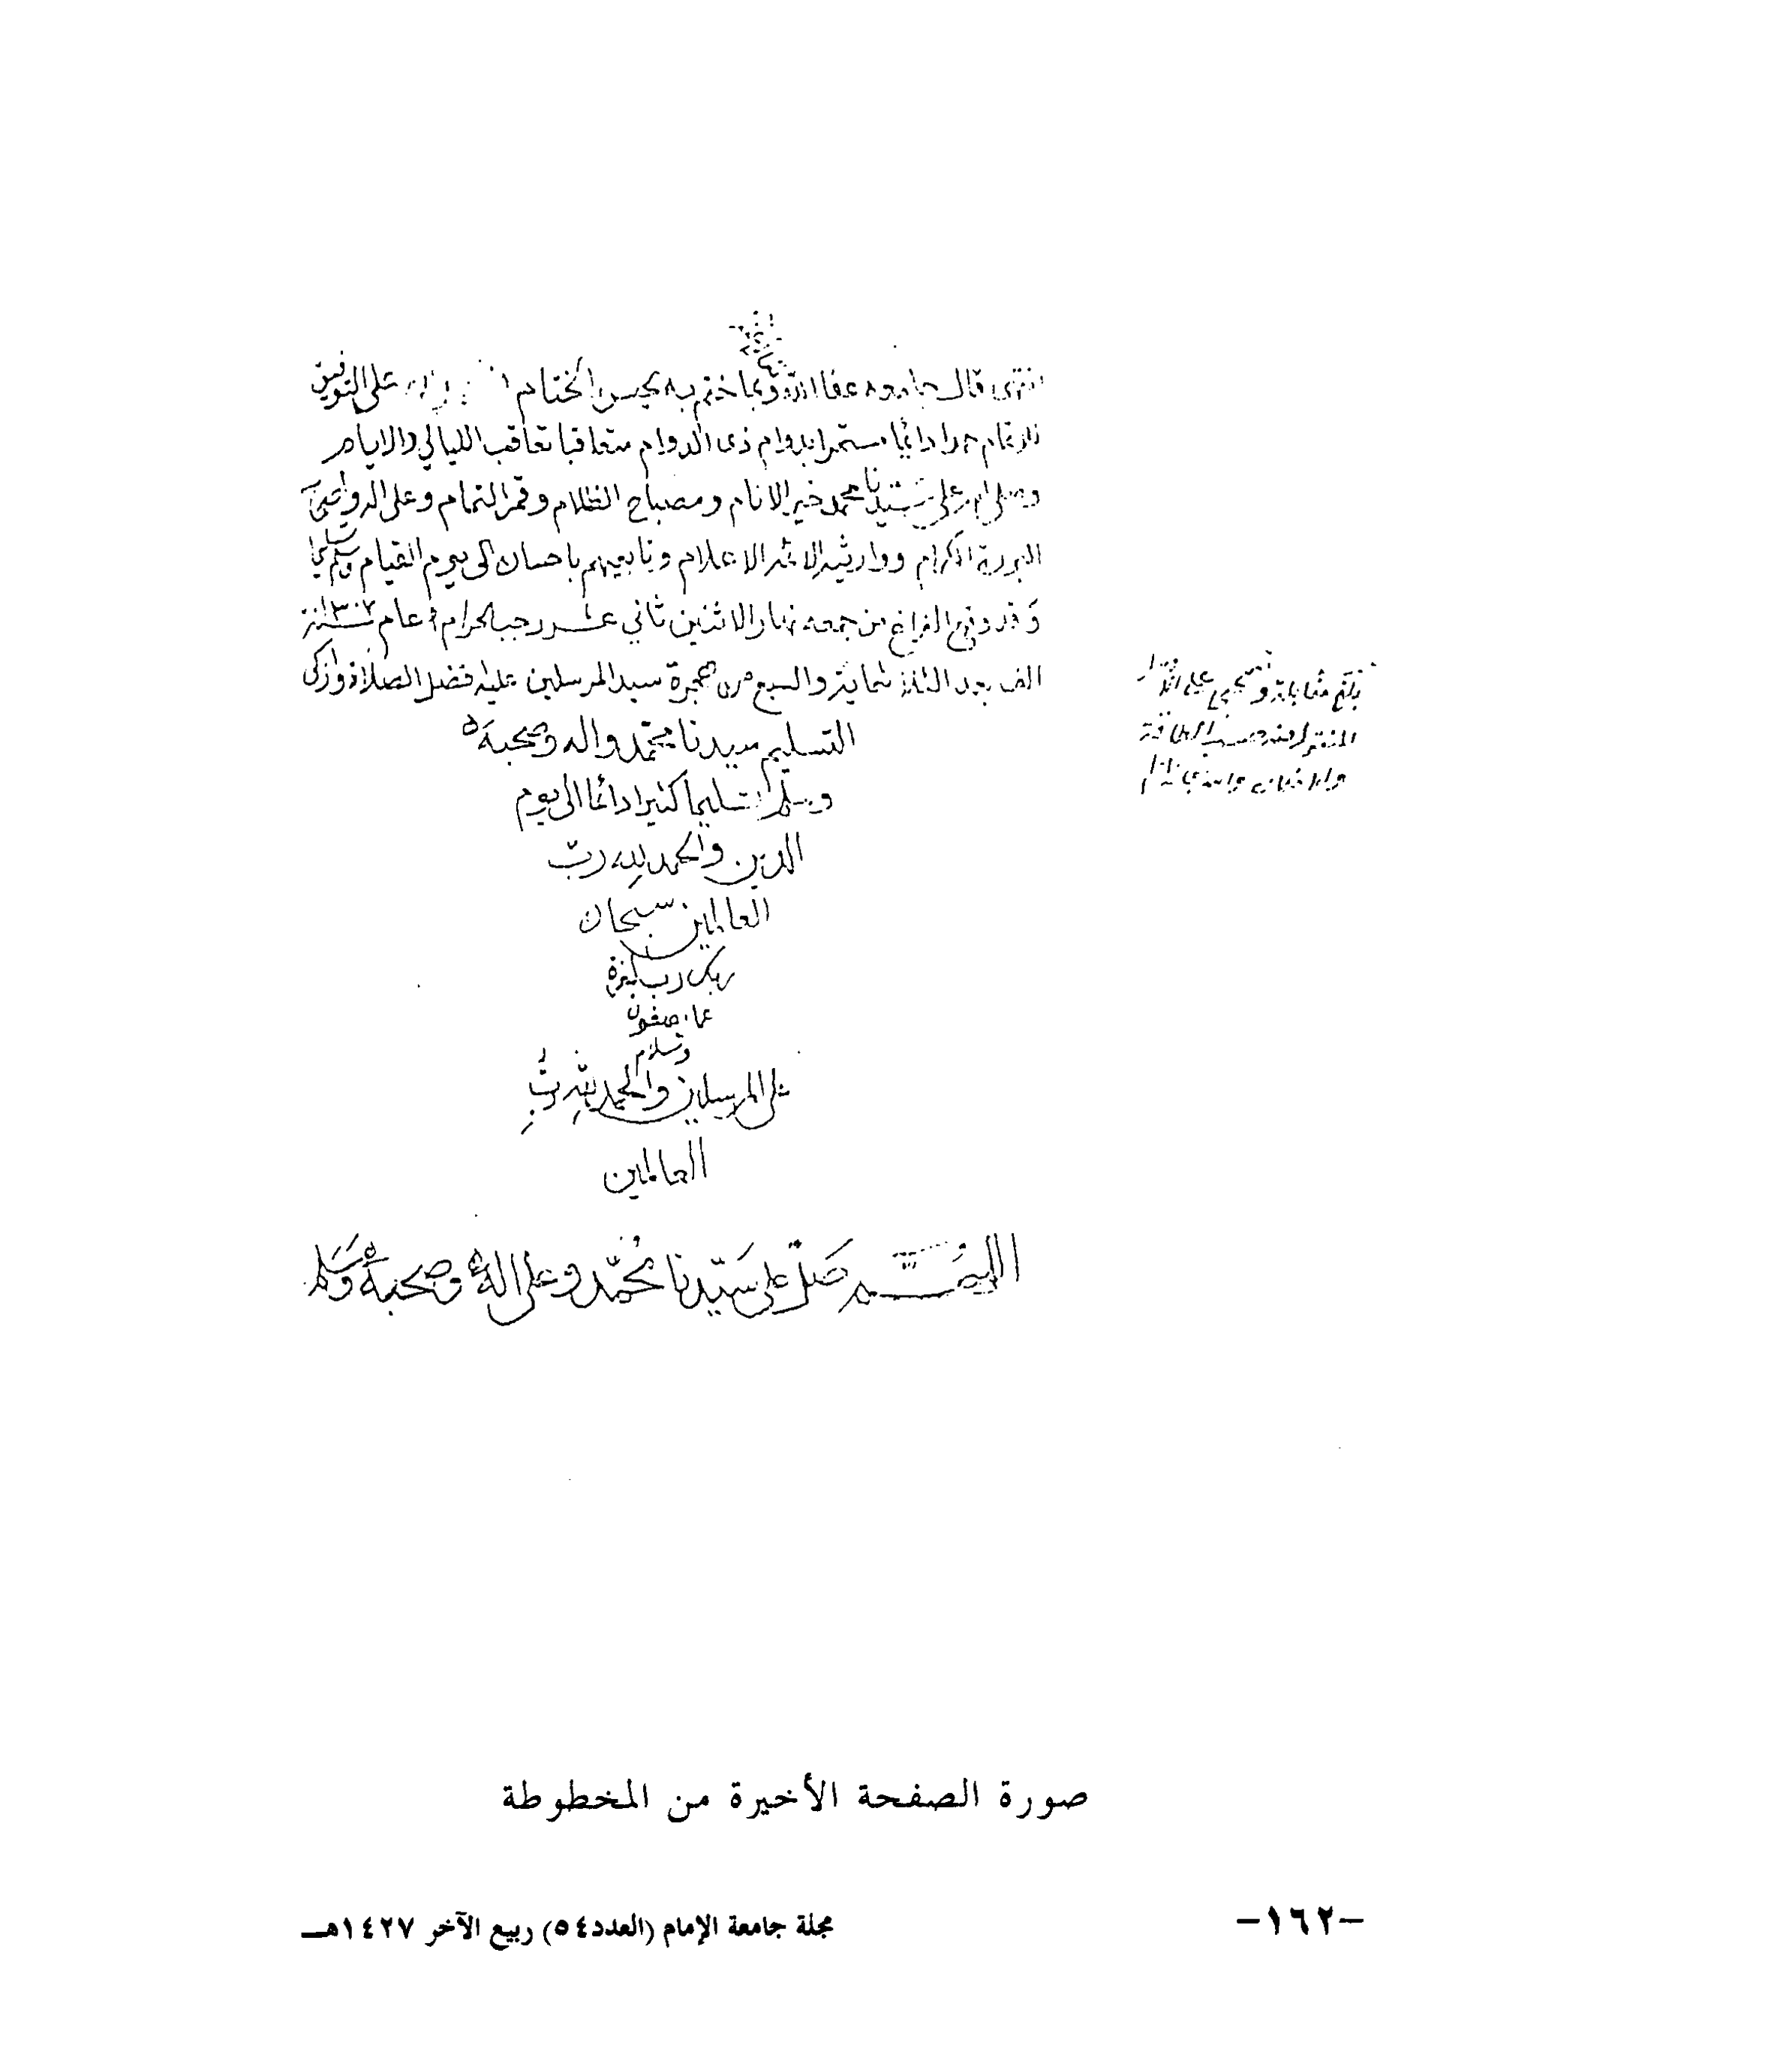 انتهى قال جامعه عفا الله وبما ختم به بحسن الختام على التوفيق
حمدا دائما مستمرا بدوام ذى الدوام متعاقبا تعاقب الليالي والايام
وصلى الله على سيدنا محمد خير الانام ومصباح الظلام وقمر التمام وعلى اله واصحابه
البررة الكرام ووارثيه الائمه الاعلام وتابعيهم باحسان الى يوم القيام وسلم تسليما
وقد وقع الفراغ من جمعه نهار الاثنين ثاني عشر رجب الحرام عام ١٣٠٧
الف بعد الثلاثمائة والسبع من هجرة سيد المرسلين عليه افضل الصلاة وازكى
التسليم سيدنا محمد واله وصحبه
وسلم تسليما كثيرا دائما الى يوم
الدين والحمد لله رب
العالمين سبحان
ربك رب العزة
عما يصفون
وسلام
على المرسلين والحمد لله رب
العالمين
اللهم صل على سيدنا محمد وعلى اله وصحبه وسلم
بلغ مقابلة على
صورة الصفحة الأخيرة من المخطوطة
-١٦٢-
مجلة جامعة الإمام (العدد ٥٤) ربيع الآخر ١٤٢٧هـ